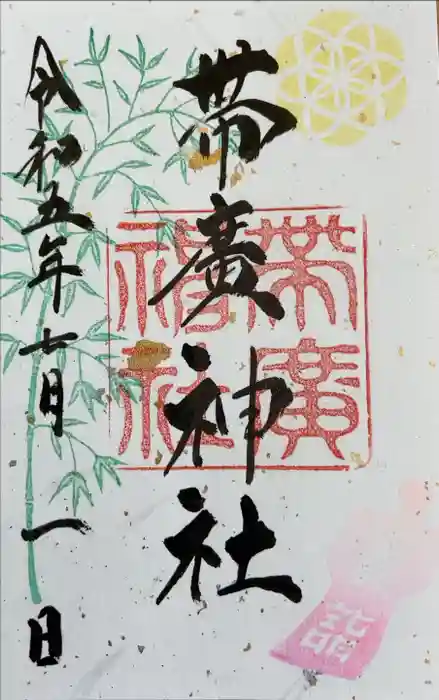 帯廣神社
帯廣
神社
令和五年七月一日